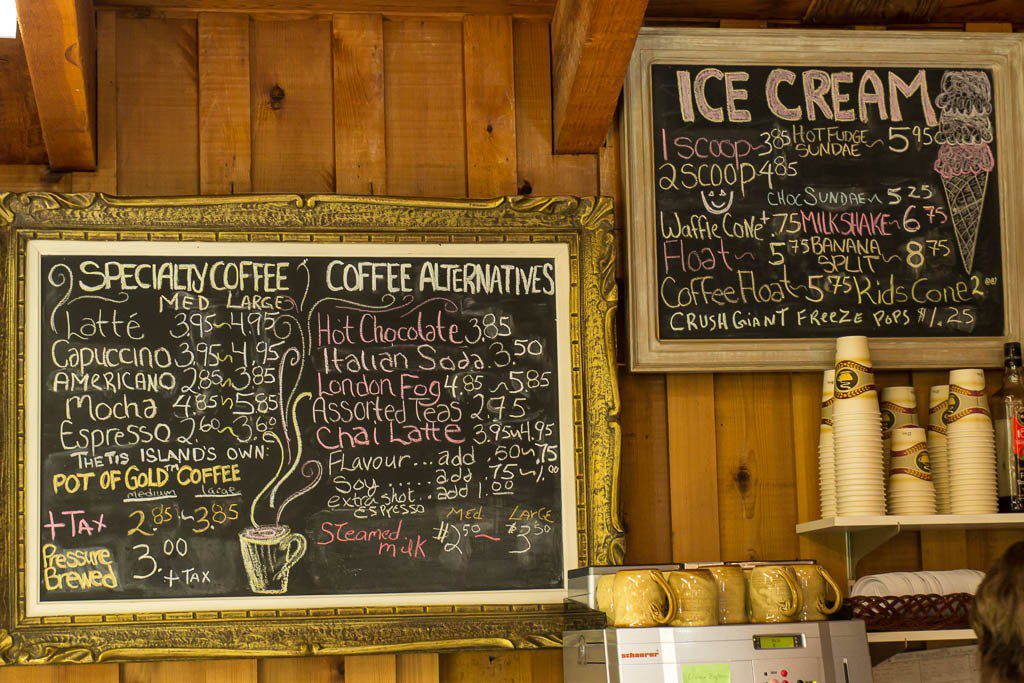 SPECIALTY COFFEE
MED LARGE
Latté 3.95~4.95
Capuccino 3.95~4.95
AMERICANO 2.85~3.85
Mocha 4.85~5.85
Espresso 2.60~3.60
THETIS ISLAND'S OWN:
POT OF GOLD™ COFFEE
medium Large
+TAX 2.85~3.85
Pressure Brewed 3.00 +TAX
COFFEE ALTERNATIVES
Hot Chocolate 3.85
Italian Soda 3.50
London Fog 4.85~5.85
Assorted Teas 2.75
Chai Latte 3.95~4.95
Flavour...add .50~.75
Soy.....add .75~1.00
extra shot...add 1.00
espresso
MED LARGE
Steamed milk $2.50~$3.50
ICE CREAM
1 scoop~3.85
2 scoop 4.85
HOT FUDGE SUNDAE~5.95
CHOC SUNDAE~5.25
Waffle Cone+.75
MILKSHAKE~6.75
Float~5.75
BANANA SPLIT~8.75
Coffee Float~5.75
Kids Cone 2
CRUSH GIANT FREEZE POPS $1.25
schaerer